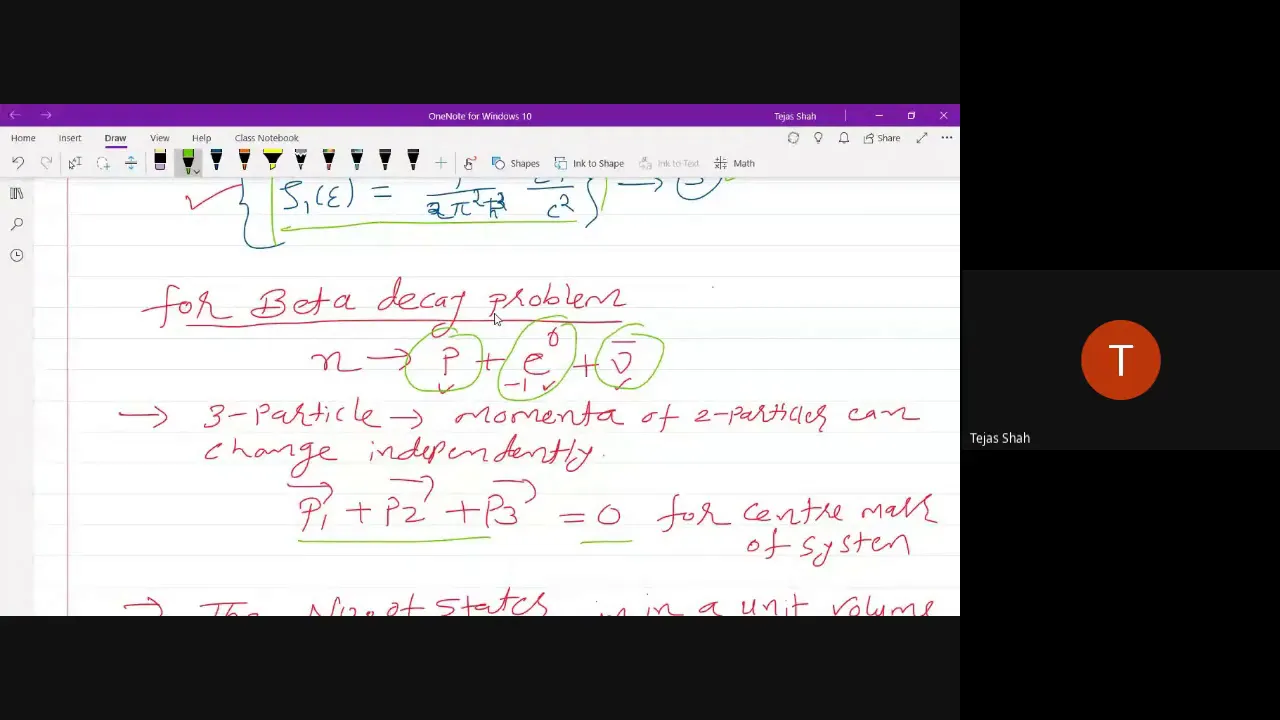 OneNote for Windows 10
Tejas Shah
Home Insert Draw View Help Class Notebook
Share
Shapes Ink to Shape Ink to Text Math
for Beta decay problem
n → P + e + ν̄
0
-1
→ 3-Particle → momenta of 2-particles can
change independently.
P1 + P2 + P3 = 0 for centre mass
of system
→ The No. of States in in a unit volume
T
Tejas Shah